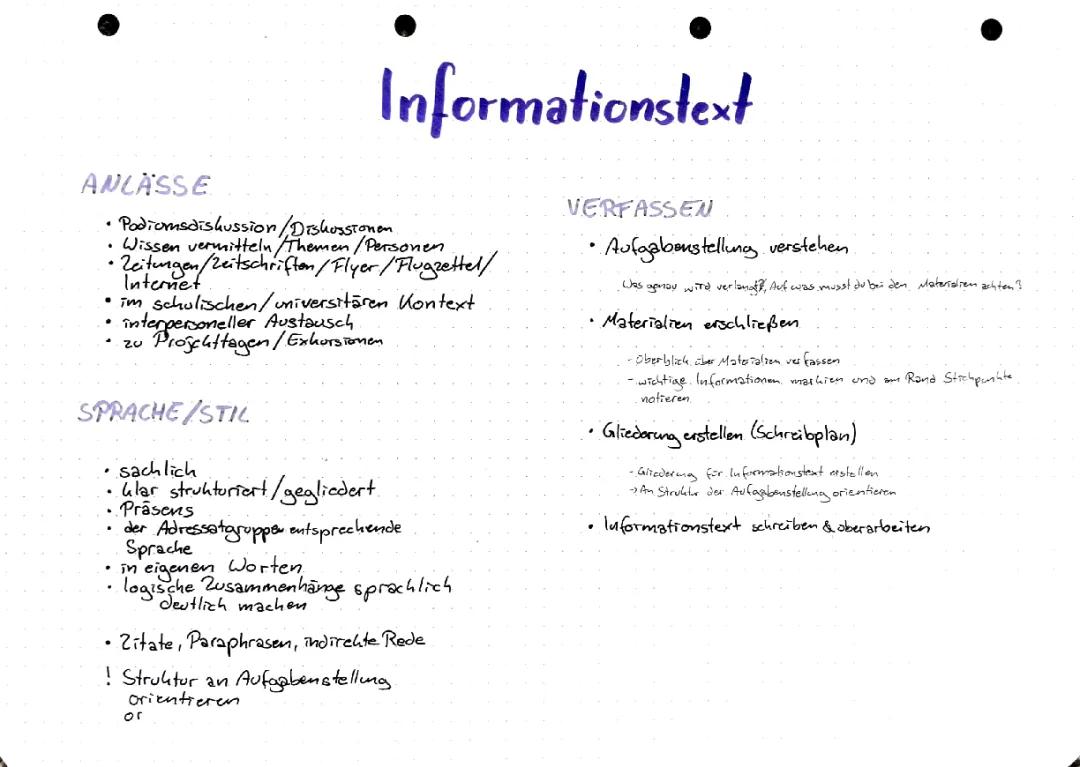 Informationstext
ANLÄSSE
• Podiumsdiskussion/Diskussionen
• Wissen vermitteln/Themen/Personen
• Zeitungen/Zeitschriften/Flyer/Flugzettel/
Internet
• im schulischen/universitären Kontext
• interpersoneller Austausch
• zu Projekttagen/Exkursionen
SPRACHE/STIL
• sachlich
• klar strukturiert/gegliedert
• Präsens
• der Adressatgruppe entsprechende
Sprache
• in eigenen Worten
• logische Zusammenhänge sprachlich
deutlich machen
• Zitate, Paraphrasen, indirekte Rede
! Struktur an Aufgabenstellung
orientieren
or
VERFASSEN
• Aufgabenstellung verstehen
Was genau wird verlangt?, Auf was musst du bei den Materialien achten?
• Materialien erschließen
- Überblick über Materialien verfassen
- wichtige Informationen markien und am Rand Stichpunkte
notieren
• Gliederung erstellen (Schreibplan)
- Gliederung für Informationstext erstellen
→ An Struktur der Aufgabenstellung orientieren
• Informationstext schreiben & überarbeiten